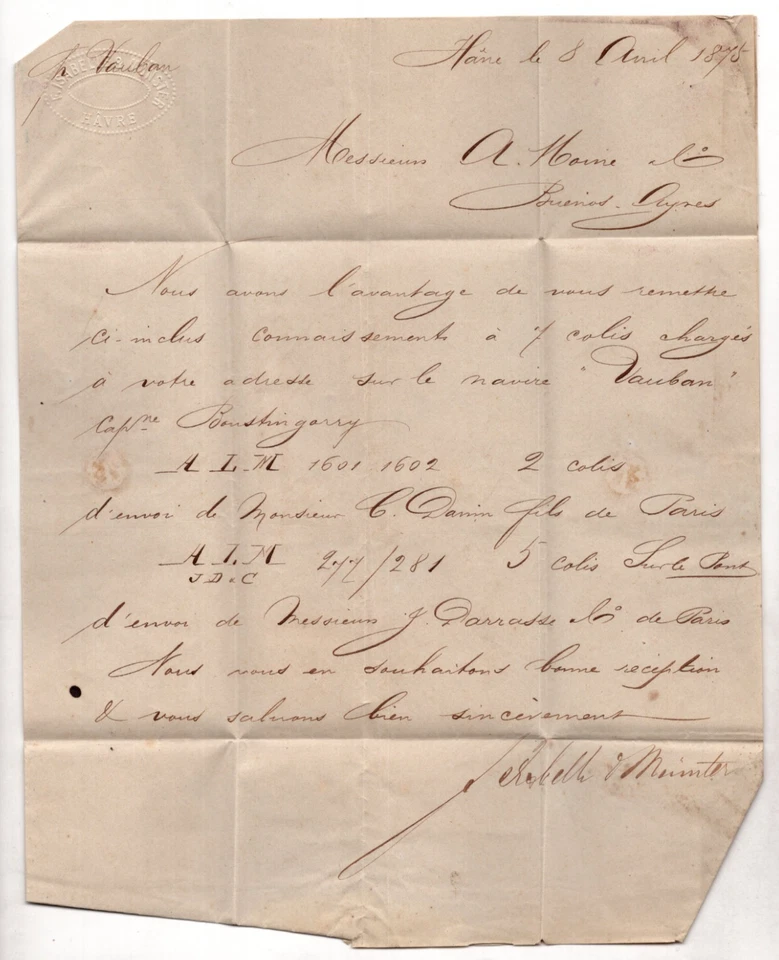 pr Vauban
HAVRE
Hâvre le 8 Avril 1875
Messieurs A. Moine & Co
Buenos-Ayres
Nous avons l'avantage de vous remettre
ci-inclus connaissements à 7 colis chargés
à votre adresse sur le navire "Vauban"
capne Boustingorry
A L M 1601 1602 2 colis
d'envoi de Monsieur C. Danin fils de Paris
A L M 277/281 5 colis Sur le Pont
J D & C
d'envoi de Messieurs J. Darrasse & Co de Paris
Nous vous en souhaitons bonne réception
& vous saluons bien sincèrement
& Münster